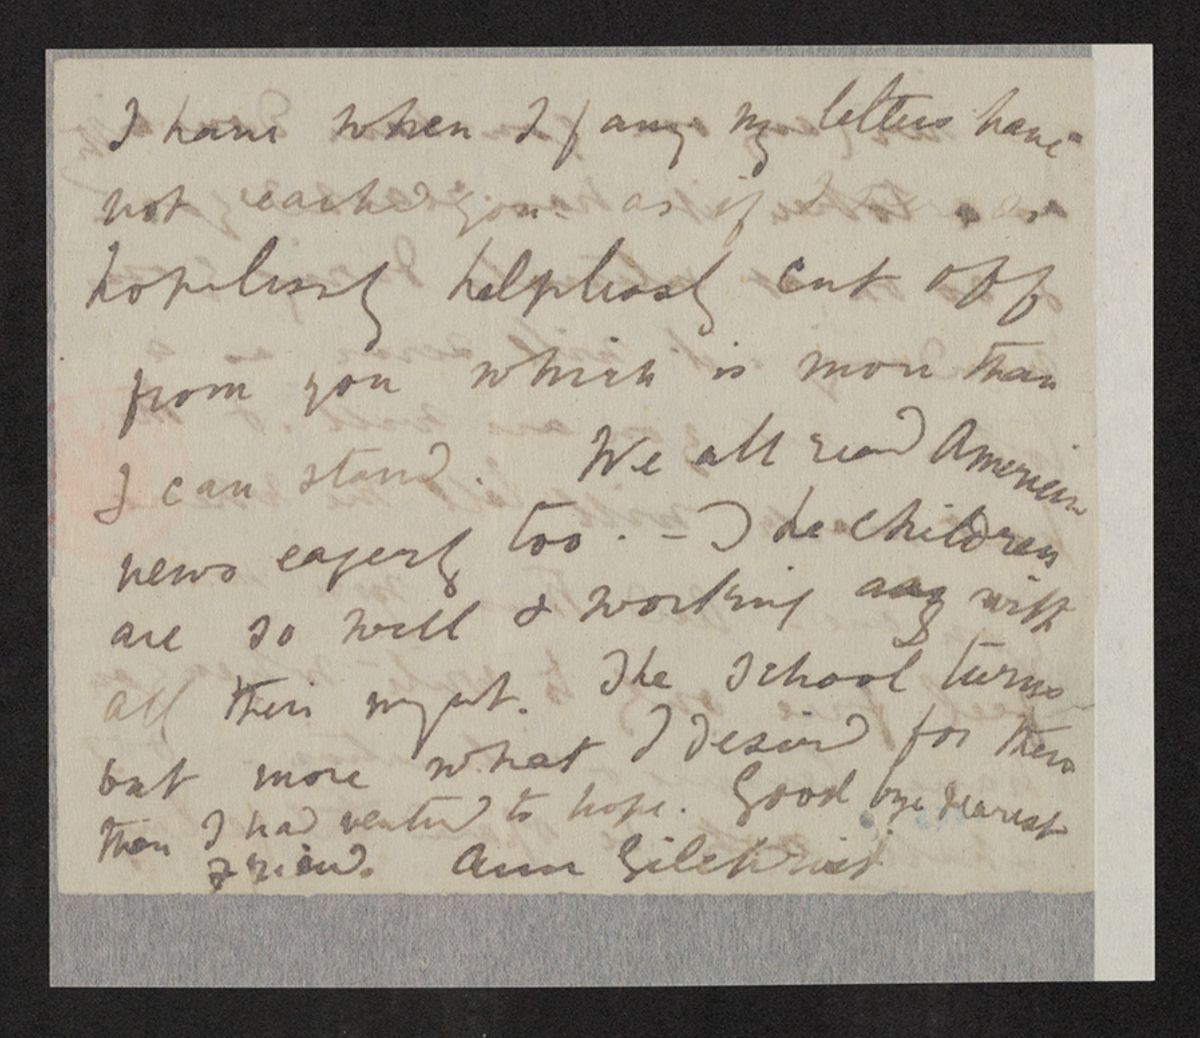 I have when I f any my letters have
not eached you. as if I as
hopelessly helplessly cut off
from you which is more than
I can stand. We all read American
news eagerly too. — The children
are so well & working with
all their might. The School turns
out more what I desired for them
than I had ventured to hope. Good bye dearest
Friend. Anne Gilchrist